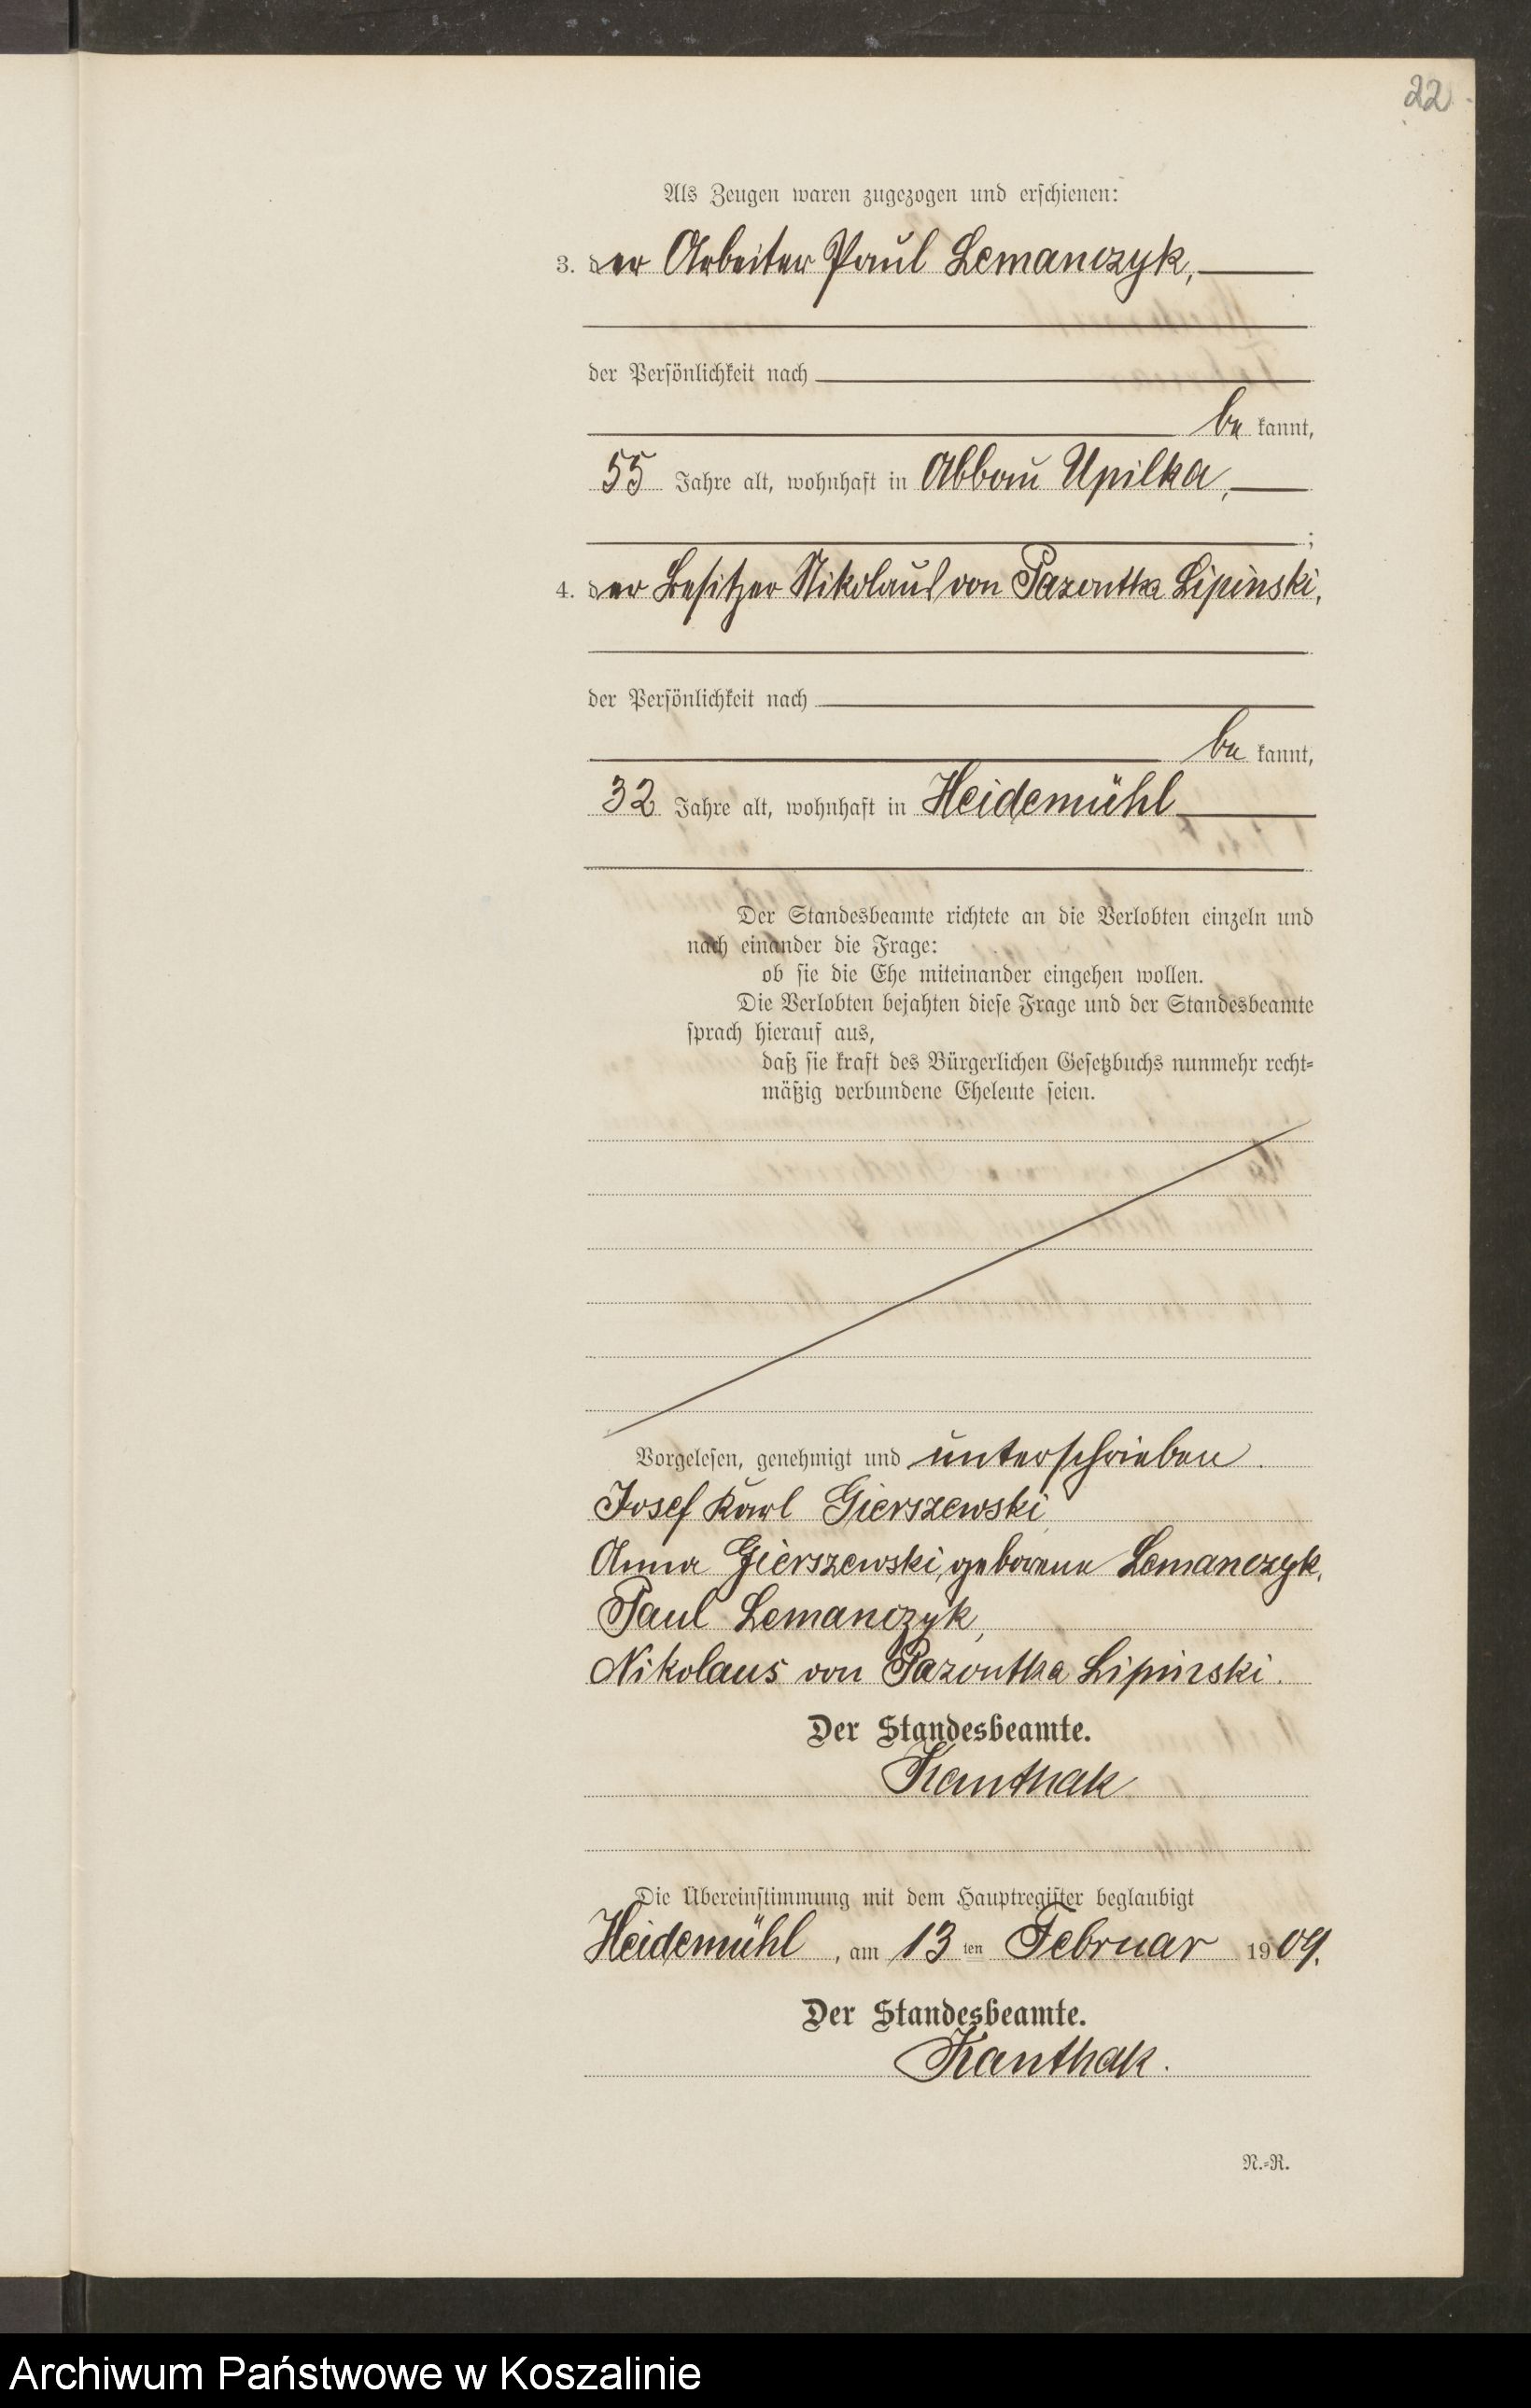 22
Als Zeugen waren zugezogen und erschienen:
3. der Arbeiter Paul Lemanczyk,
der Persönlichkeit nach
be kannt,
55 Jahre alt, wohnhaft in Abbau Upilka,
;
4. der Besitzer Nikolaus von Pazontka Lipinski,
der Persönlichkeit nach
be kannt,
32 Jahre alt, wohnhaft in Heidemühl
Der Standesbeamte richtete an die Verlobten einzeln und
nach einander die Frage:
ob sie die Ehe miteinander eingehen wollen.
Die Verlobten bejahten diese Frage und der Standesbeamte
sprach hierauf aus,
daß sie kraft des Bürgerlichen Gesetzbuchs nunmehr recht-
mäßig verbundene Eheleute seien.
Vorgelesen, genehmigt und unterschrieben.
Josef Karl Gierszewski
Anna Gierszewski, geborene Lemanczyk.
Paul Lemanczyk,
Nikolaus von Pazontka Lipinski.
Der Standesbeamte.
Kanthak
Die Übereinstimmung mit dem Hauptregister beglaubigt
Heidemühl, am 13 ten Februar 1909.
Der Standesbeamte.
Kanthak.
N.-R.
Archiwum Państwowe w Koszalinie